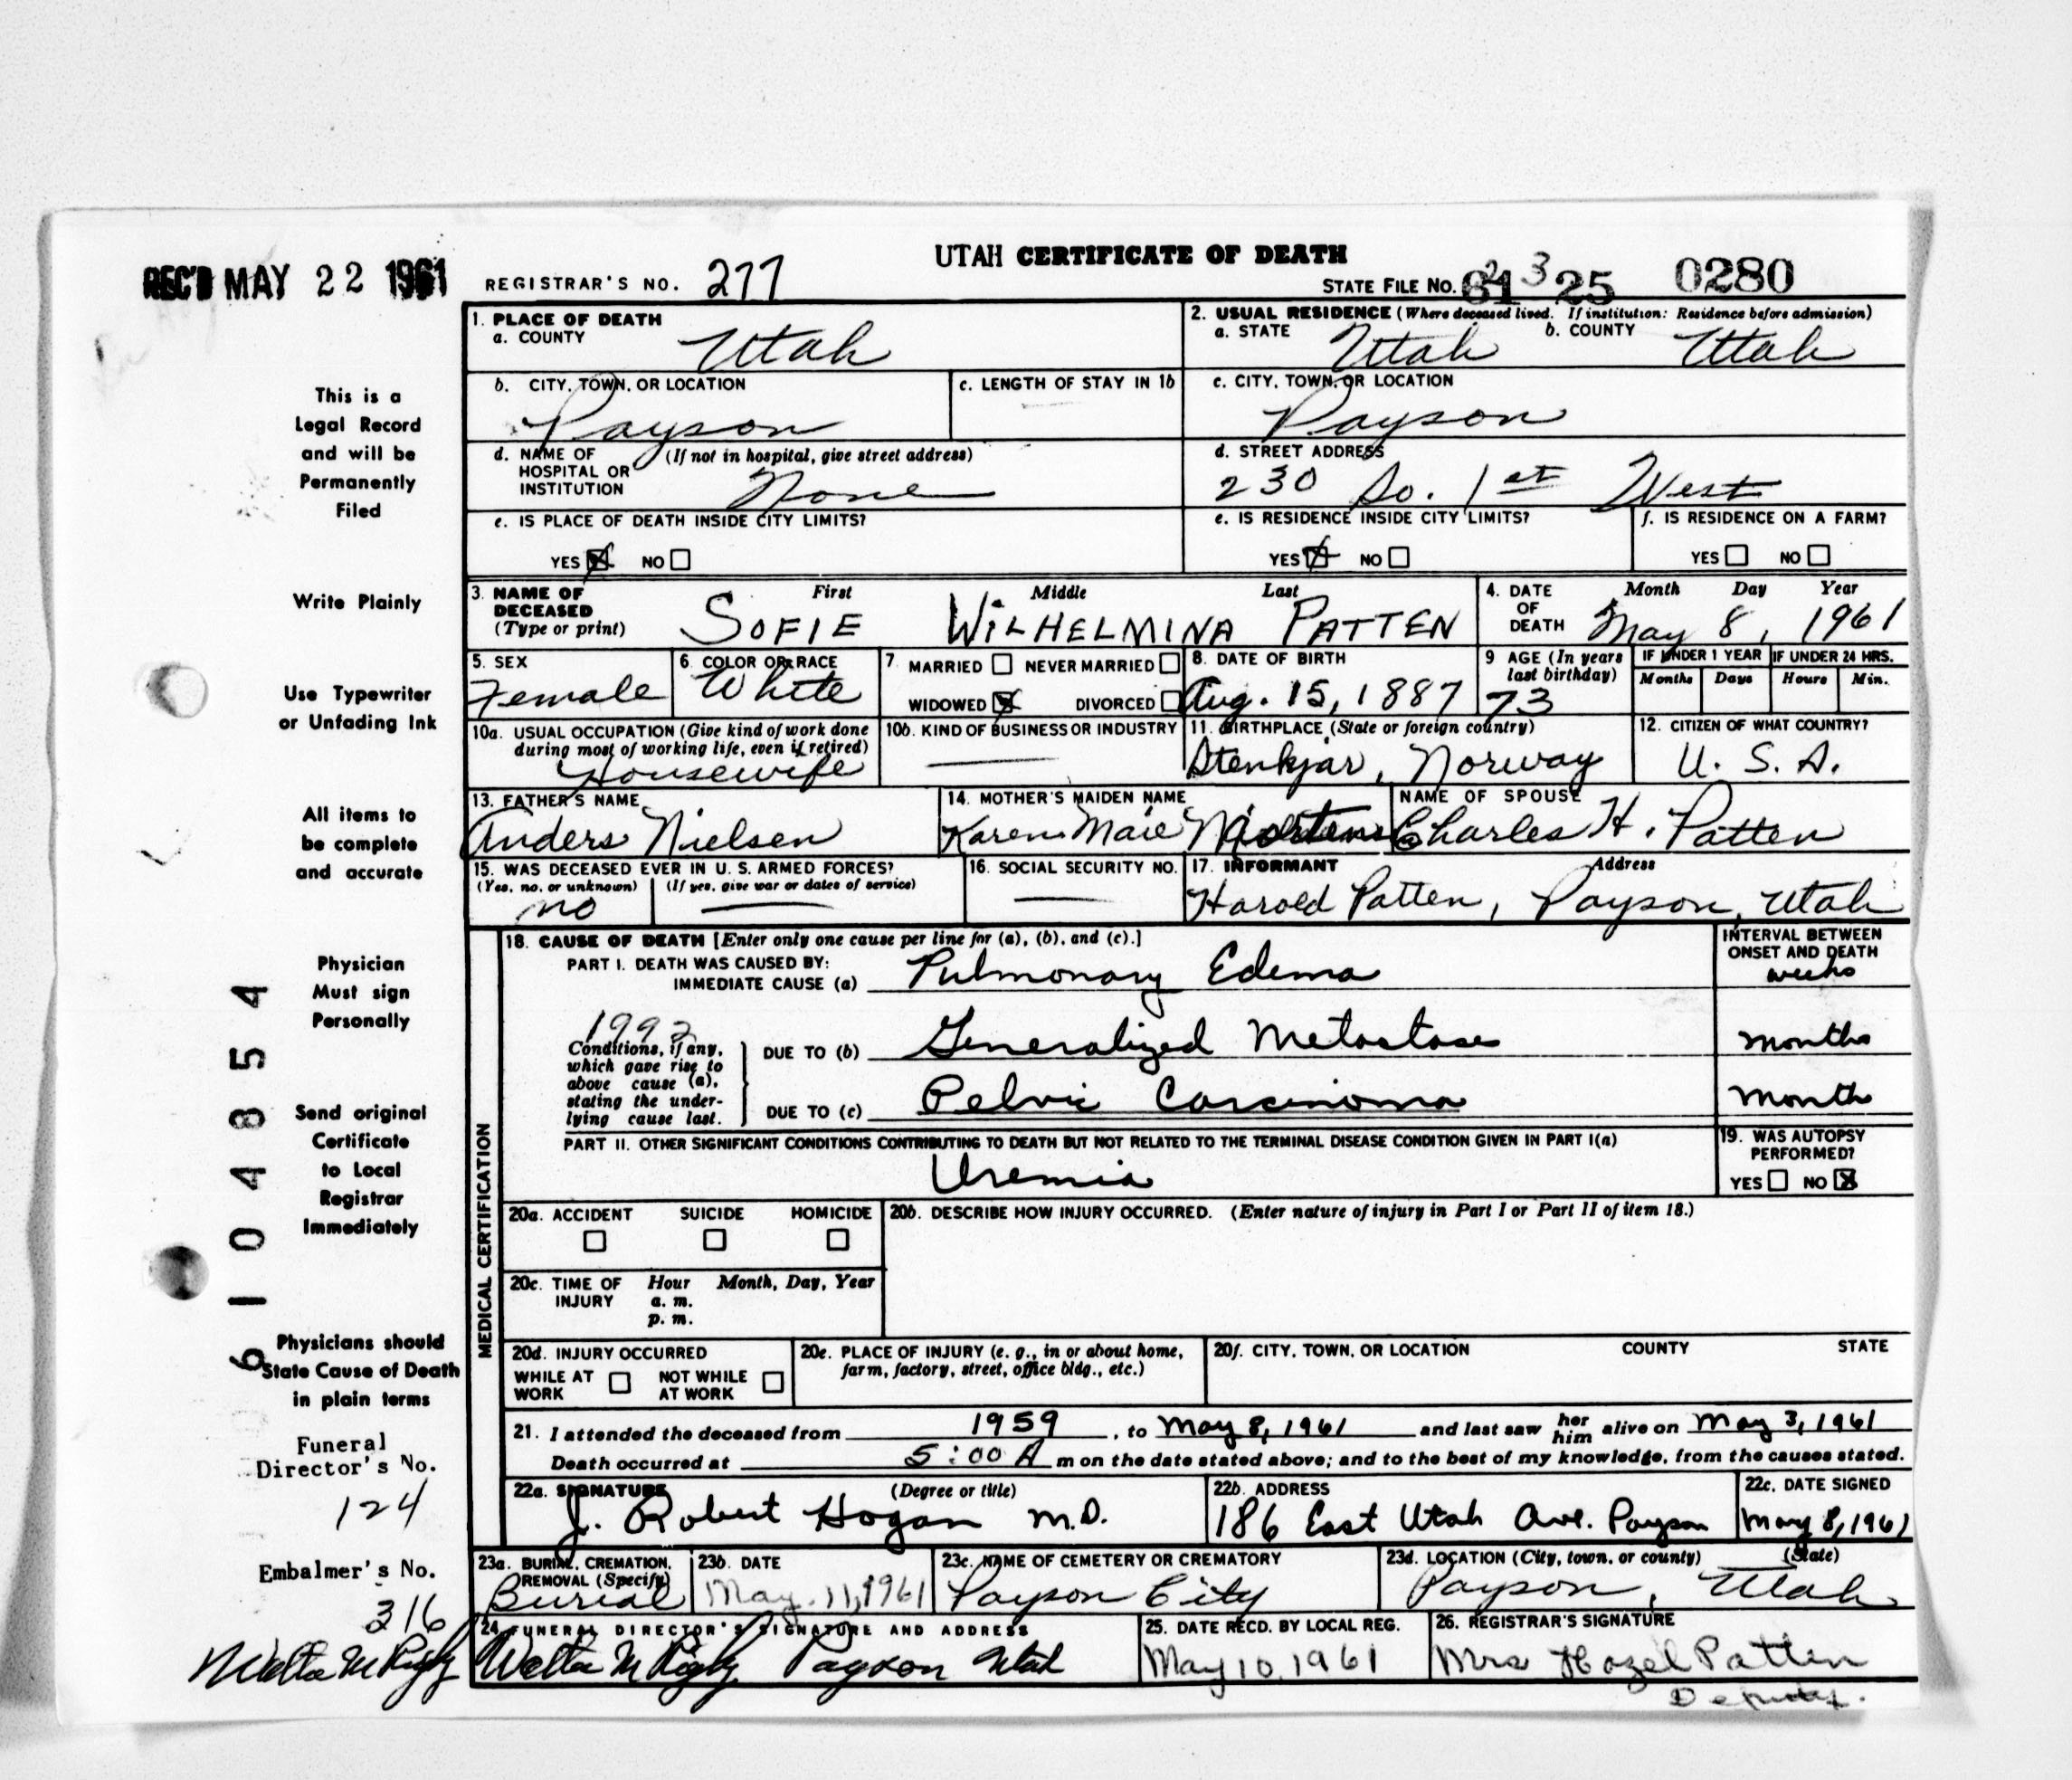 UTAH CERTIFICATE OF DEATH
REC'D MAY 22 1961
REGISTRAR'S NO. 277
STATE FILE NO. 0280
1. PLACE OF DEATH
a. COUNTY
Utah
2. USUAL RESIDENCE (Where deceased lived. If institution: Residence before admission)
a. STATE Utah b. COUNTY Utah
b. CITY, TOWN, OR LOCATION
Payson
c. LENGTH OF STAY IN 1b
c. CITY, TOWN, OR LOCATION
Payson
d. NAME OF HOSPITAL OR INSTITUTION (If not in hospital, give street address)
None
d. STREET ADDRESS
230 So. 1st West
e. IS PLACE OF DEATH INSIDE CITY LIMITS?
YES NO
e. IS RESIDENCE INSIDE CITY LIMITS?
YES NO
f. IS RESIDENCE ON A FARM?
YES NO
3. NAME OF DECEASED (Type or print)
First Middle Last
SOFIE WILHELMINA PATTEN
4. DATE OF DEATH
Month Day Year
May 8, 1961
5. SEX
Female
6. COLOR OR RACE
White
7. MARRIED NEVER MARRIED
WIDOWED DIVORCED
8. DATE OF BIRTH
Aug. 15, 1887
9 AGE (In years last birthday)
73
IF UNDER 1 YEAR
Months Days
IF UNDER 24 HRS.
Hours Min.
10a. USUAL OCCUPATION (Give kind of work done during most of working life, even if retired)
Housewife
10b. KIND OF BUSINESS OR INDUSTRY
11. BIRTHPLACE (State or foreign country)
Stenkjar, Norway
12. CITIZEN OF WHAT COUNTRY?
U. S. A.
13. FATHER'S NAME
Anders Nielsen
14. MOTHER'S MAIDEN NAME
Karen Maie
NAME OF SPOUSE
Charles H. Patten
15. WAS DECEASED EVER IN U. S. ARMED FORCES?
(Yes, no, or unknown) (If yes, give war or dates of service)
no
16. SOCIAL SECURITY NO.
17. INFORMANT Address
Harold Patten, Payson, Utah
MEDICAL CERTIFICATION
18. CAUSE OF DEATH [Enter only one cause per line for (a), (b), and (c).]
INTERVAL BETWEEN ONSET AND DEATH
PART I. DEATH WAS CAUSED BY:
IMMEDIATE CAUSE (a) Pulmonary Edema weeks
1992
Conditions, if any, which gave rise to above cause (a), stating the underlying cause last.
DUE TO (b) Generalized Metastases months
DUE TO (c) Pelvic Carcinoma months
PART II. OTHER SIGNIFICANT CONDITIONS CONTRIBUTING TO DEATH BUT NOT RELATED TO THE TERMINAL DISEASE CONDITION GIVEN IN PART I(a)
Uremia
19. WAS AUTOPSY PERFORMED?
YES NO
20a. ACCIDENT SUICIDE HOMICIDE
20b. DESCRIBE HOW INJURY OCCURRED. (Enter nature of injury in Part I or Part II of item 18.)
20c. TIME OF INJURY
Hour Month, Day, Year
a. m.
p. m.
20d. INJURY OCCURRED
WHILE AT WORK NOT WHILE AT WORK
20e. PLACE OF INJURY (e. g., in or about home, farm, factory, street, office bldg., etc.)
20f. CITY, TOWN, OR LOCATION COUNTY STATE
21. I attended the deceased from 1959, to May 8, 1961 and last saw her him alive on May 3, 1961
Death occurred at 5:00 A m on the date stated above; and to the best of my knowledge, from the causes stated.
22a. SIGNATURE (Degree or title)
J. Robert Hogan M.D.
22b. ADDRESS
186 East Utah Ave. Payson
22c. DATE SIGNED
May 8, 1961
23a. BURIAL, CREMATION, REMOVAL (Specify)
Burial
23b. DATE
May. 11, 1961
23c. NAME OF CEMETERY OR CREMATORY
Payson City
23d. LOCATION (City, town, or county) (State)
Payson, Utah
24. FUNERAL DIRECTOR'S SIGNATURE AND ADDRESS
Payson Utah
25. DATE RECD. BY LOCAL REG.
May 10, 1961
26. REGISTRAR'S SIGNATURE
Mrs Hazel Patten
Deputy.
This is a
Legal Record
and will be
Permanently
Filed
Write Plainly
Use Typewriter
or Unfading Ink
All items to
be complete
and accurate
Physician
Must sign
Personally
Send original
Certificate
to Local
Registrar
Immediately
Physicians should
State Cause of Death
in plain terms
Funeral
Director's No.
124
Embalmer's No.
316
6104854